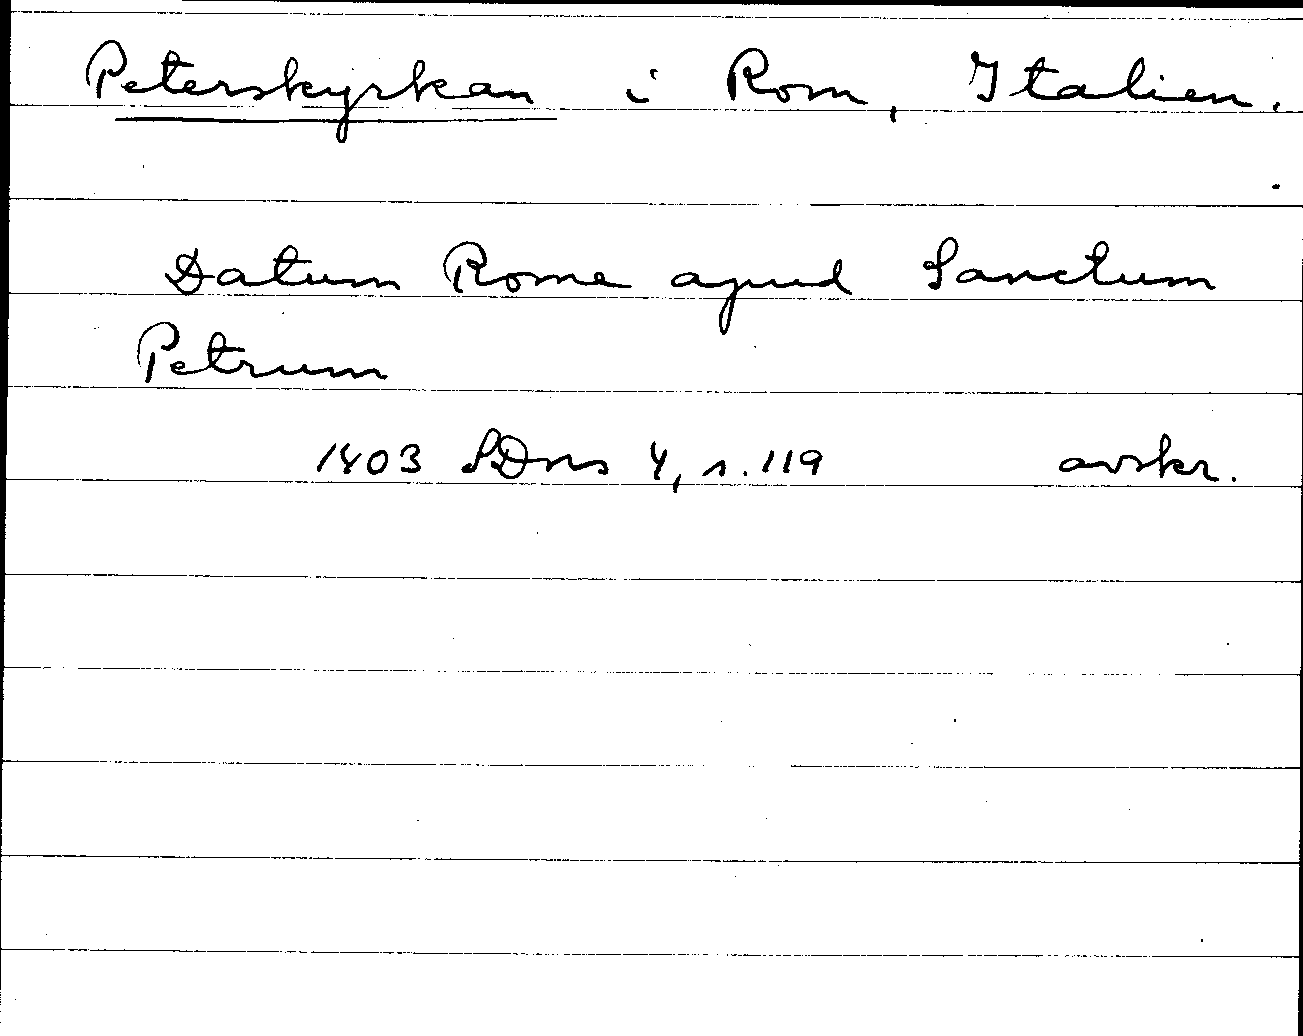 Peterskyrkan i Rom, Italien.
Datum Rome apud Sanctum
Petrum
1403 SDns 4, s. 119 avskr.